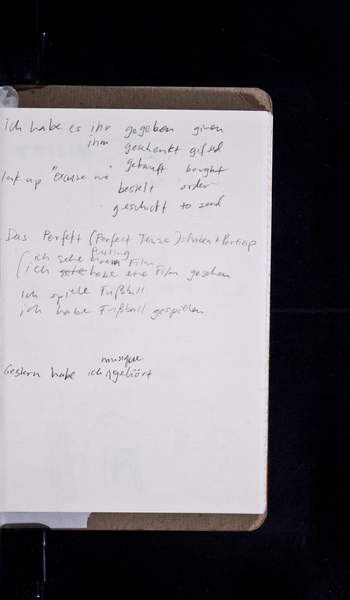 Ich habe es ihr gegeben given
ihm geschenkt gifted
gekauft bought
look up "excuse me"
bestelt order
geschickt to send
Das Perfekt (Perfect Tense): haben + Partizip
ich sehe einen Film
ich habe ein Film gesehen
ich spiele Fußball
ich habe Fußball gespielen
musique
Gestern habe ich gehört